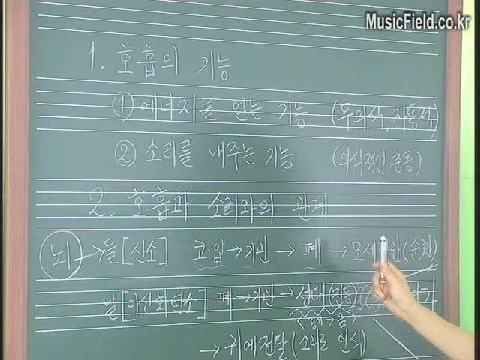 MusicField.co.kr
1. 호흡의 기능
① 에너지를 얻는 기능 (무의식, 자동적)
② 소리를 내주는 기능 (의식적인 운동)
2. 호흡과 소리와의 관계
뇌 → 들[산소] 코입 → 기관 → 폐 → 모세 (순환)
날[이산화탄소] 폐 → 기관 → 성대(진동)
→ 귀에전달(소리로 인식)